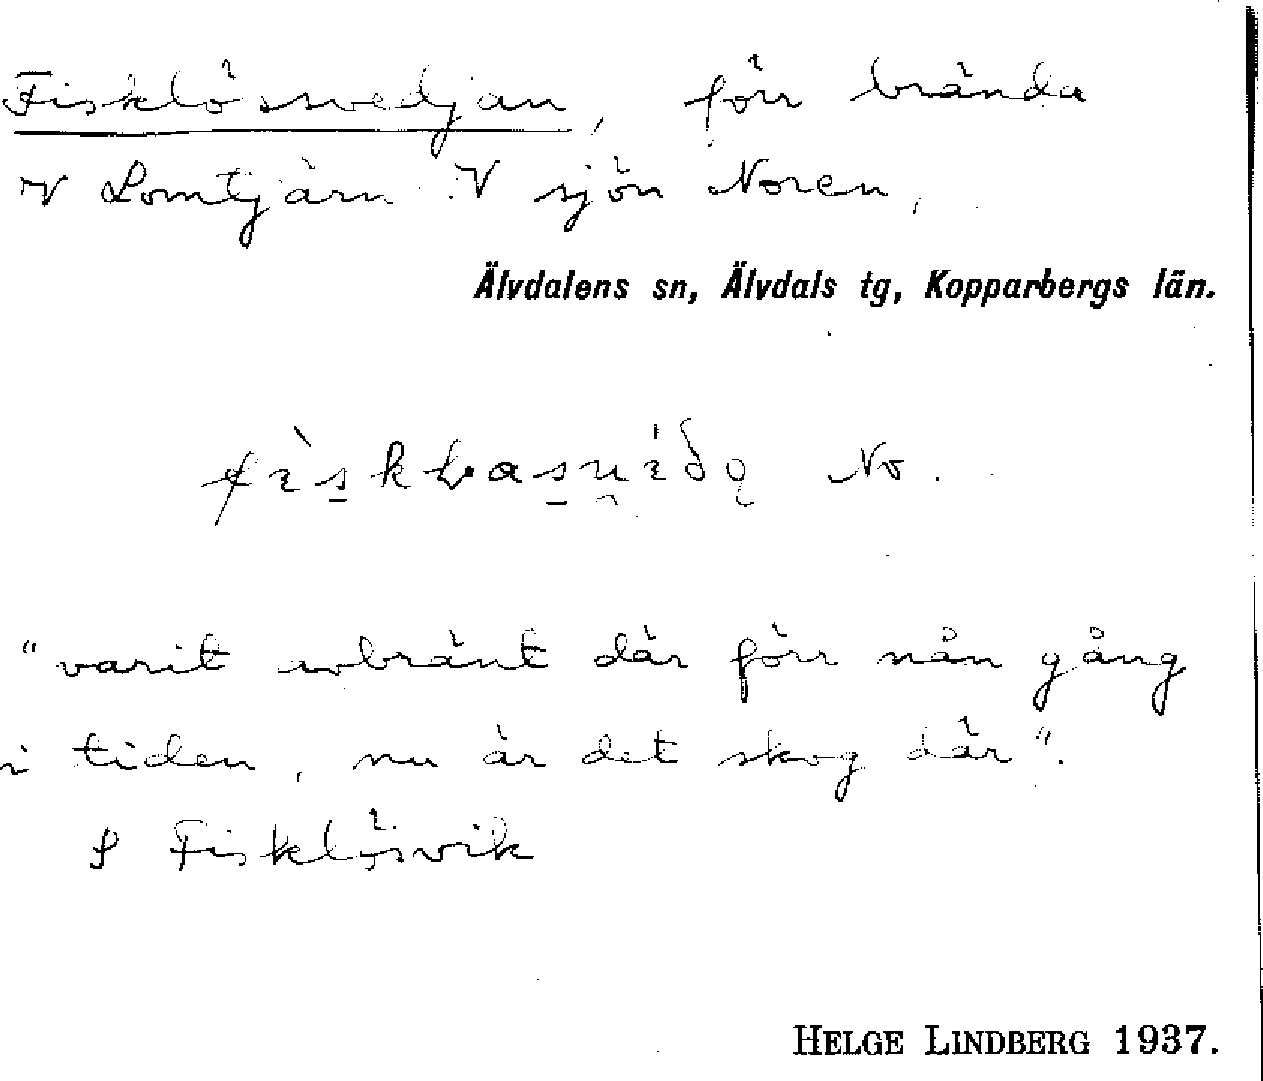 Fisklössvedjan, förr brända
V Lomtjärn V sjön Noren,
Älvdalens sn, Älvdals tg, Kopparbergs län.
No.
"varit avbränt där förr nån gång
i tiden, nu är det skog där".
S Fisklösvik
HELGE LINDBERG 1937.